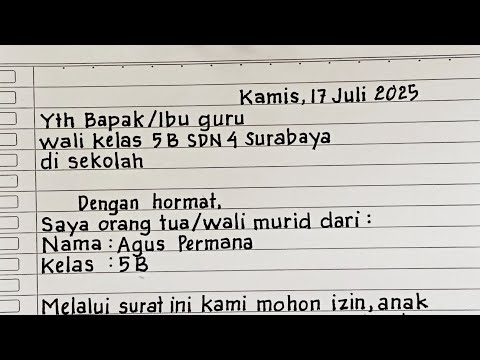 Kamis, 17 Juli 2025
Yth Bapak/Ibu guru
wali kelas 5B SDN 4 Surabaya
di sekolah
Dengan hormat,
Saya orang tua/wali murid dari :
Nama : Agus Permana
Kelas : 5B
Melalui surat ini kami mohon izin, anak